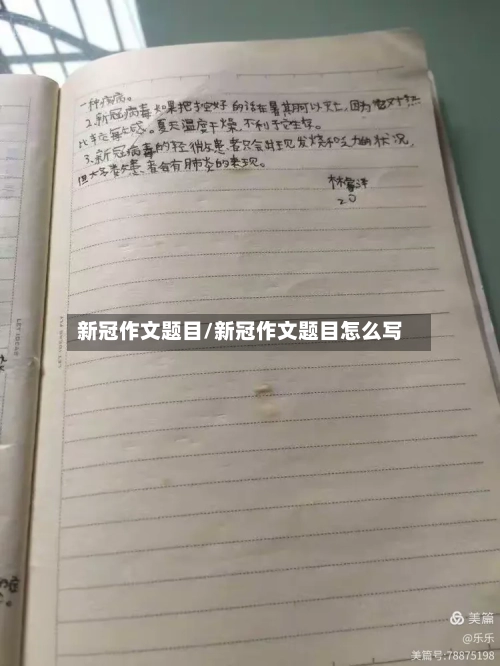 一种疾病。
2.新冠病毒如果把控好的话在暑期可以灭亡,因为它对热
比较敏感。夏天温度干燥,不利于生存。
3.新冠病毒的轻微患者只会出现发烧和乏力的状况,
但大多数患者会有肺炎的表现。
林
20
新冠作文题目/新冠作文题目怎么写
美篇
@乐乐
美篇号:78875198